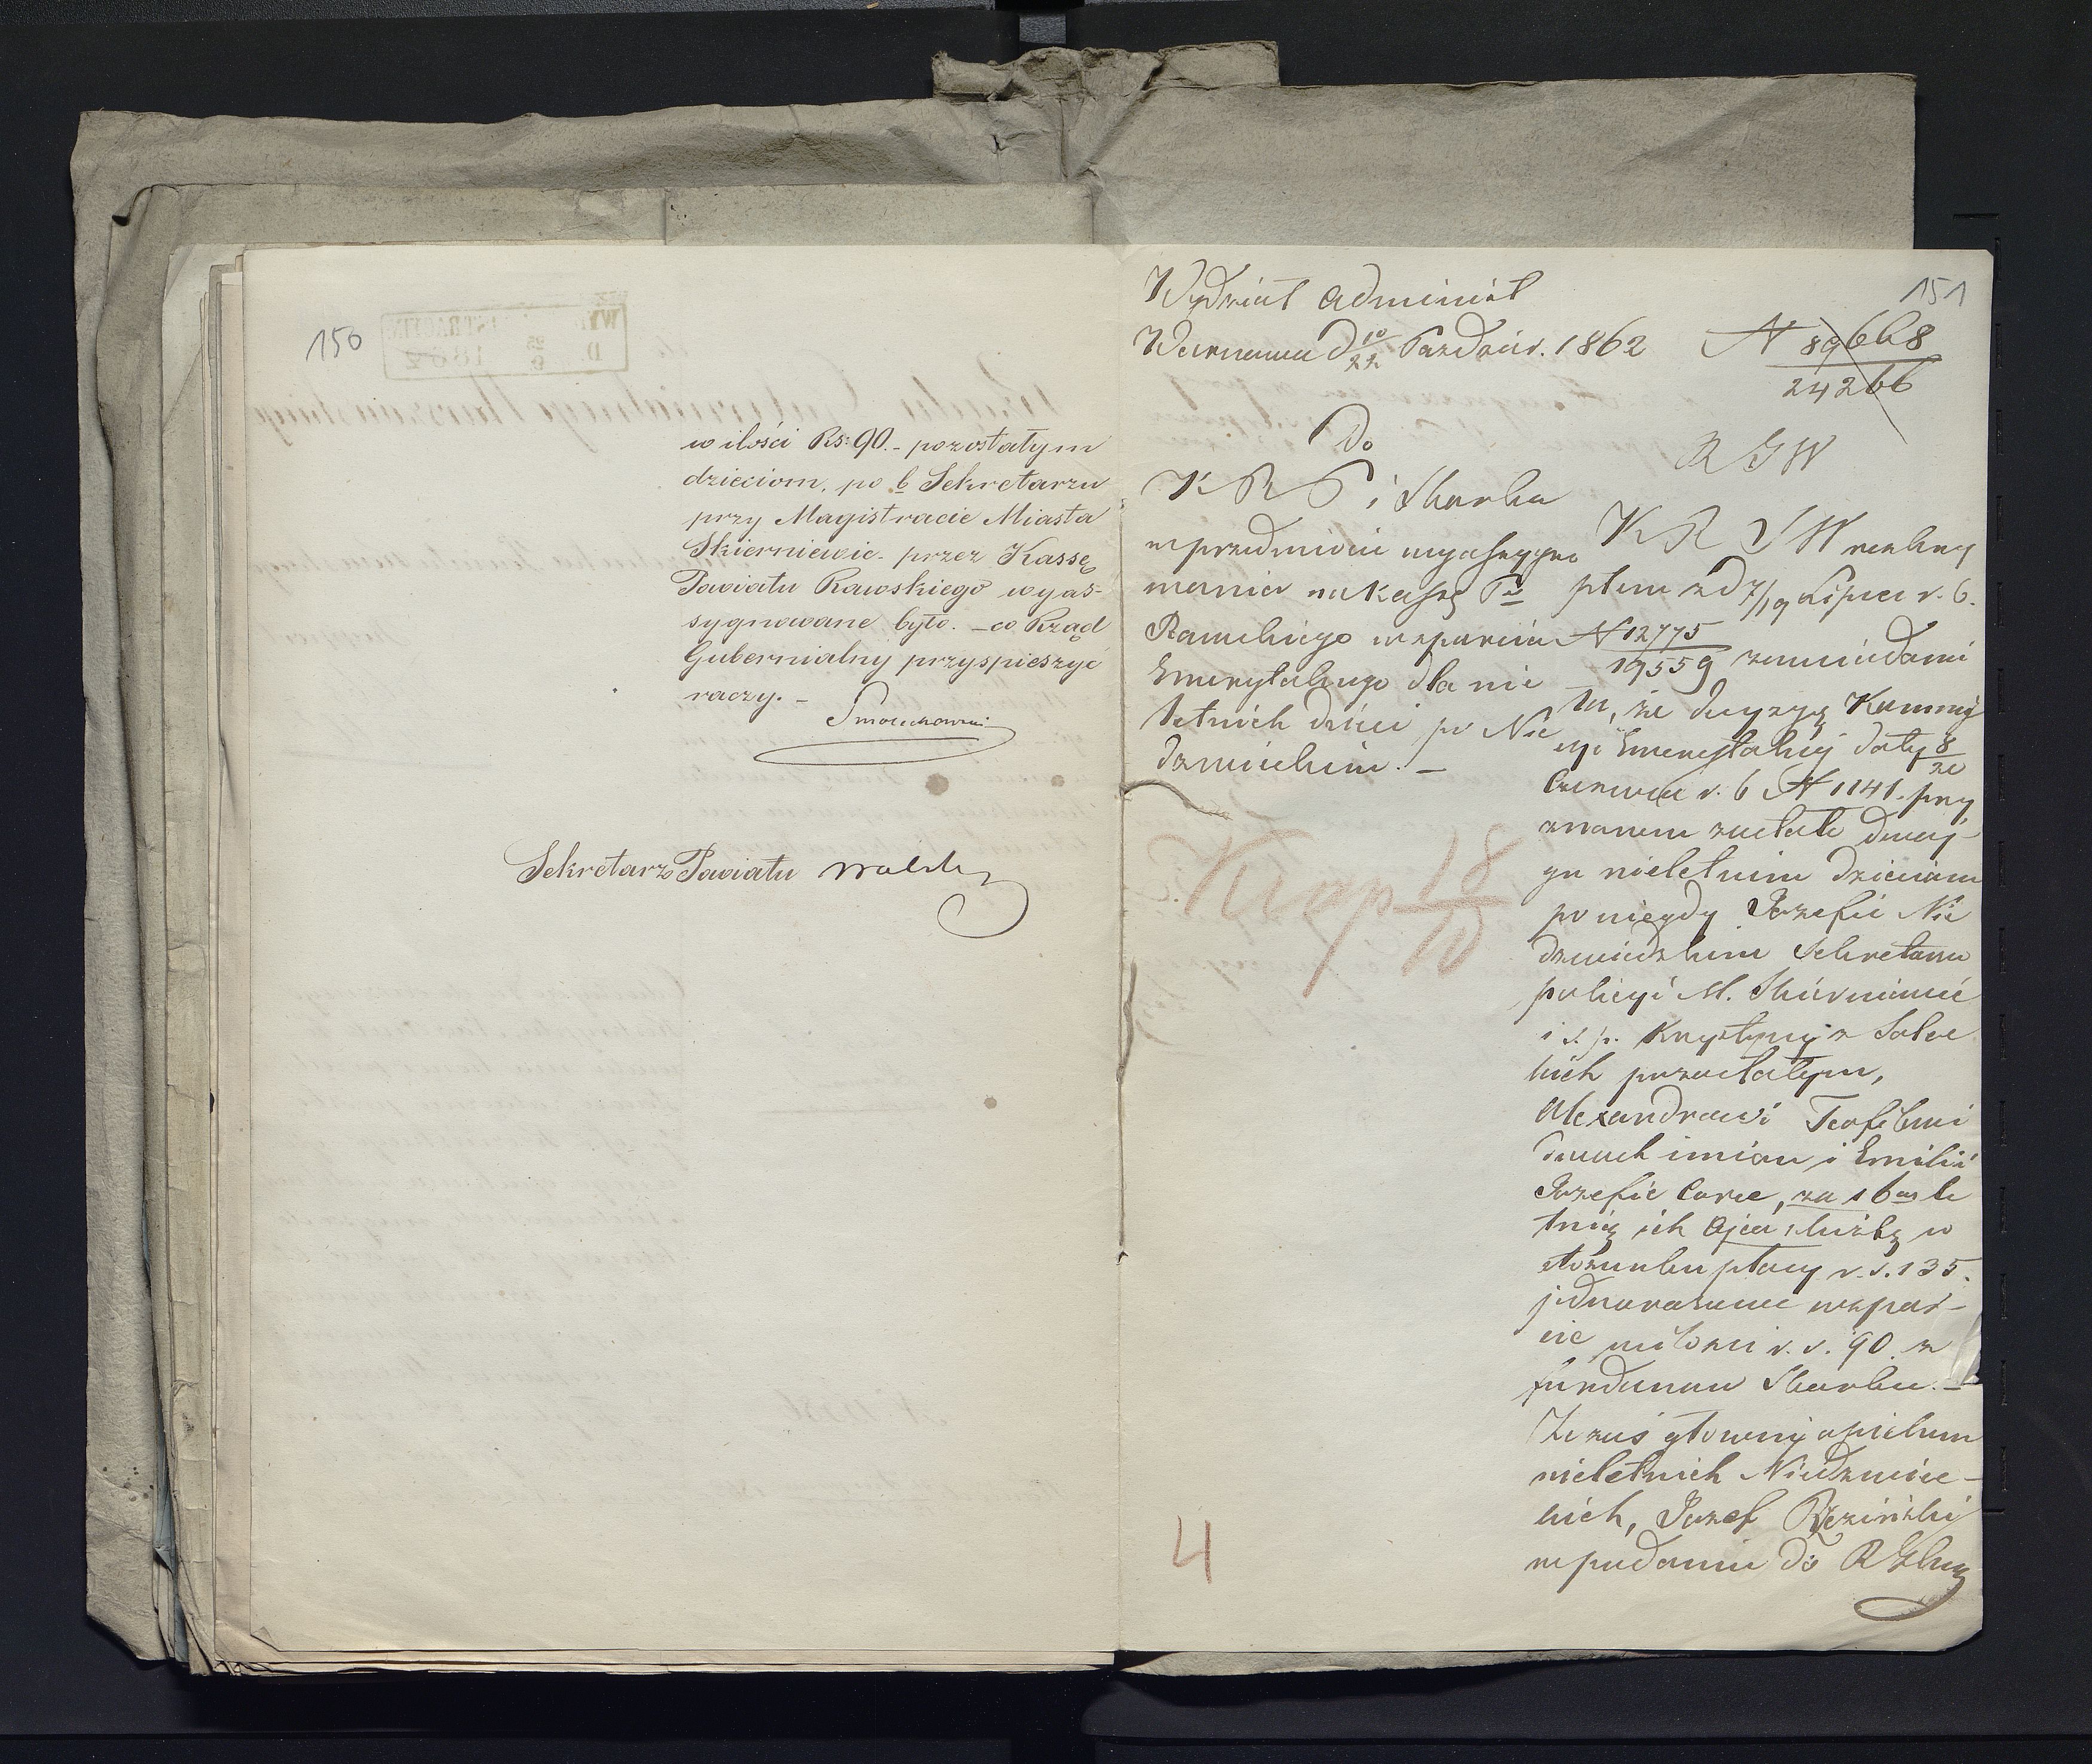 150
w ilości Rs: 90.- pozostałym
dzieciom, po b Sekretarzu
przy Magistracie Miasta
Skierniewic- przez Kassę
Powiatu Rawskiego wyas-
sygnowane było. - co Rząd
Gubernialny przyspieszyć
raczy. -
Sekretarz Powiatu
151
Wydział Administ
Warszawa d 10/22 Paździer. 1862
N 89668
24266
Do
R G W
K R P i Skarbu
w przedmiocie wyassygno
wania na kassę Pu
Rawskiego wsparcia
Emerytalnego dla nie
letnich dzieci po Nie
dzwieckim. -
Kop 18/10
4
K R S W reskry
ptem z d 7/19 Lipca r. b.
N 12775
19559 zawiadomi
ła, że decyzyą Kommis
yi Emerytalnej daty 8/20
Czerwca r. b N 1141. przy
znanem zostało dwoj-
gu nieletnim dzieciom
po niegdy Józefie Nie
dzwiedzkim Sekretarzu
policyi M. Skierniewic
i s. p. Krystyny z
pozostałym,
Alexandrowi Teofilowi
dwuch imion i Emilii
Józefie Corce, za 16as le
tnią ich Ojca służbę w
stosunku płacy r. s. 135.
jednorazowe wspar-
cie w ilości r. s. 90. z
funduszu Skarbu. -
Ze zaś głowny opiekun
nieletnich Niedzwiec-
kich, Józef
w podaniu do R G